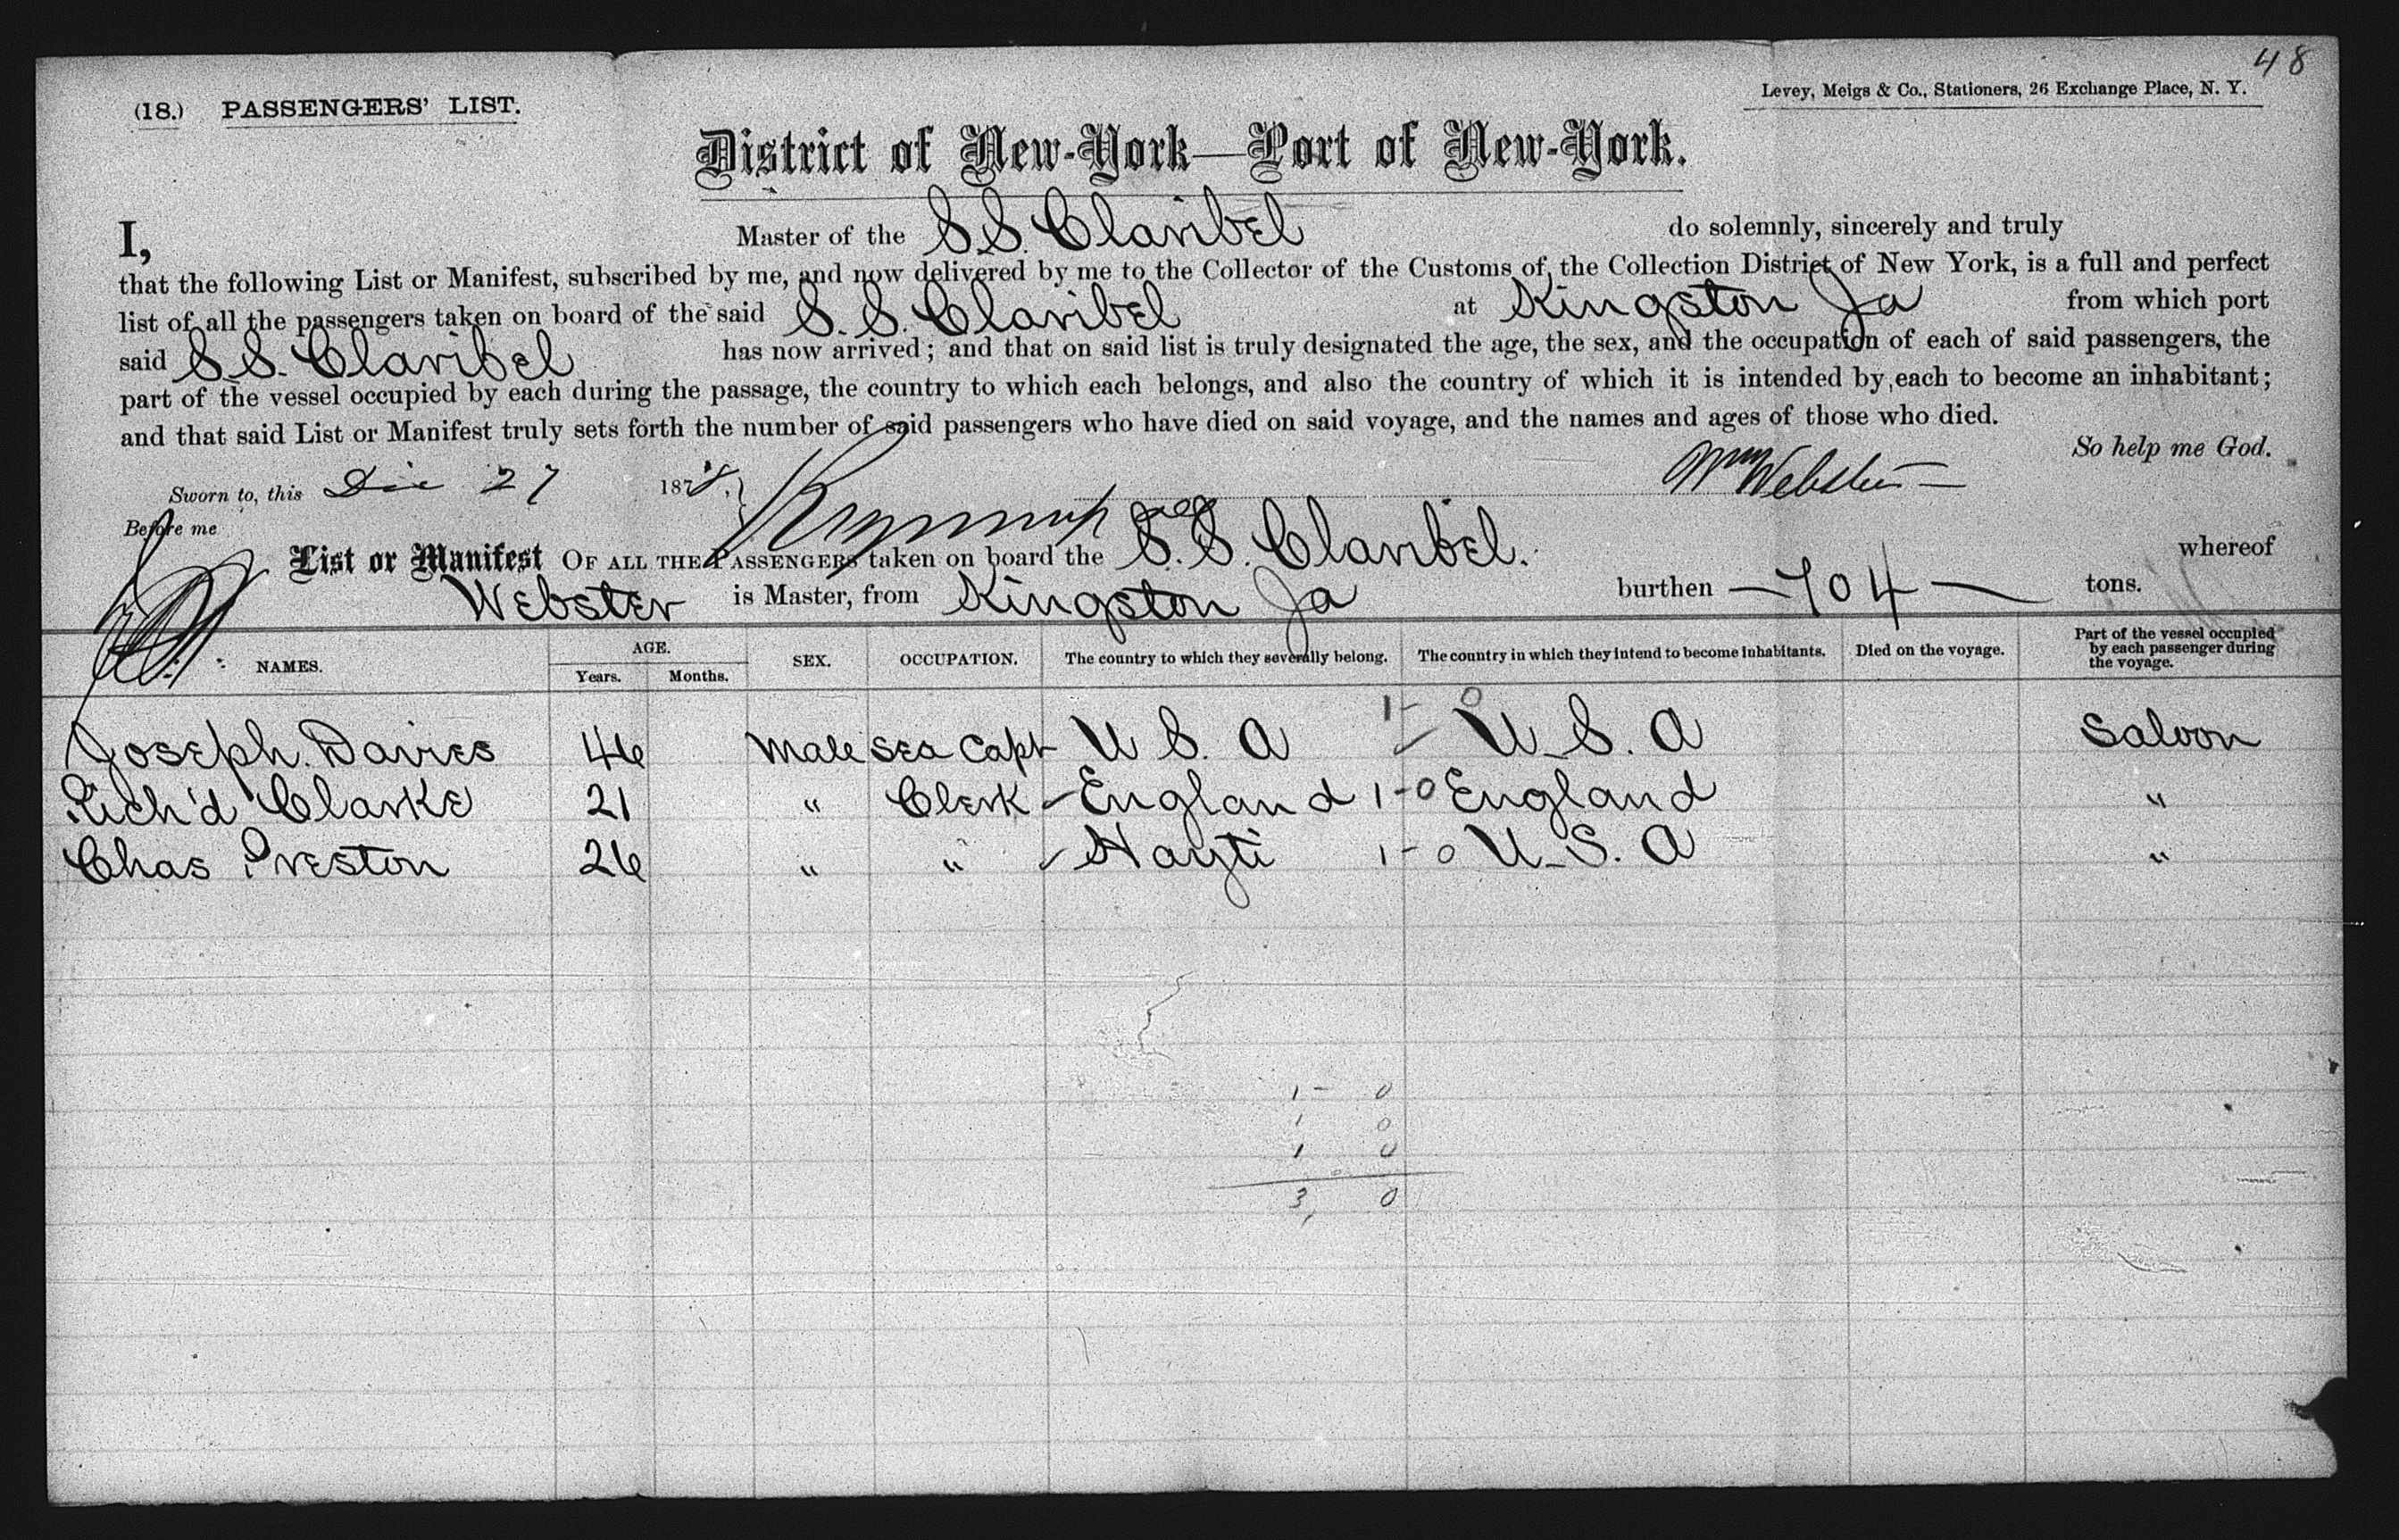 48
(18.) PASSENGERS' LIST.
Levey, Meigs & Co., Stationers, 26 Exchange Place, N. Y.
District of New-York—Port of New-York.
I, Master of the S.S. Claribel do solemnly, sincerely and truly
that the following List or Manifest, subscribed by me, and now delivered by me to the Collector of the Customs of the Collection District of New York, is a full and perfect
list of all the passengers taken on board of the said S. S. Claribel at Kingston Ja from which port
said S S. Claribel has now arrived; and that on said list is truly designated the age, the sex, and the occupation of each of said passengers, the
part of the vessel occupied by each during the passage, the country to which each belongs, and also the country of which it is intended by each to become an inhabitant;
and that said List or Manifest truly sets forth the number of said passengers who have died on said voyage, and the names and ages of those who died.
So help me God.
Sworn to, this Dec 27 187 Wm Webster
Before me
List or Manifest OF ALL THE PASSENGERS taken on board the S. S. Claribel. whereof
Webster is Master, from Kingston Ja burthen —704— tons.
NAMES. AGE. Years. Months. SEX. OCCUPATION. The country to which they severally belong. The country in which they intend to become inhabitants. Died on the voyage. Part of the vessel occupied by each passenger during the voyage.
Joseph. Davies 46 Male Sea Capt U S. A 1- 0 U. S. A Saloon
Rich'd Clarke 21 " Clerk England 1-0 England "
Chas Preston 26 " " Hayti 1-0 U. S. A "
1- 0
1 0
1 0
3, 0